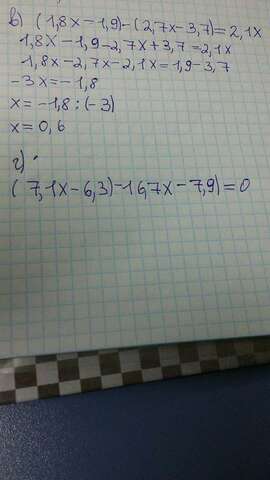 в) (1,8x-1,9)-(2,7x-3,7)=2,1x
1,8x-1,9-2,7x+3,7=2,1x
1,8x-2,7x-2,1x=1,9-3,7
-3x=-1,8
x=-1,8:(-3)
x=0,6
г)
(7,1x-6,3)-(6,7x-7,9)=0